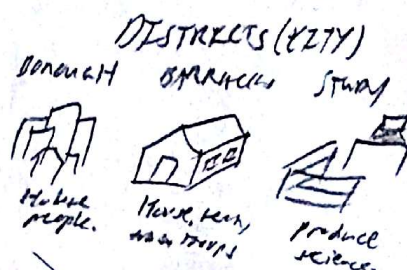 DISTRICTS (CITY)
BOROUGH BARRACKS STUDY
people. House, troops produce
science